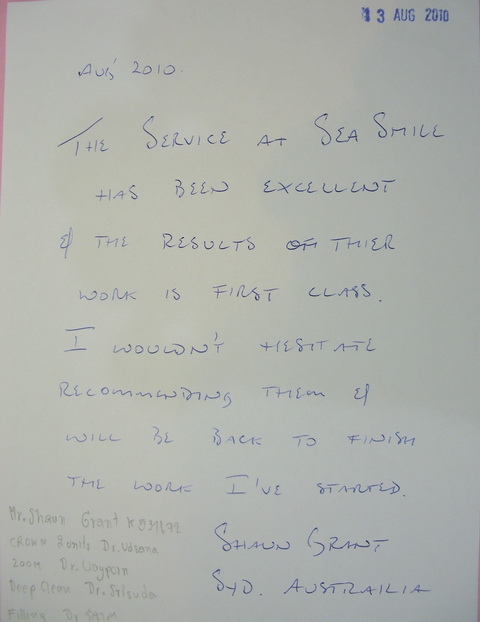 13 AUG 2010
AUG' 2010.
THE SERVICE AT SEA SMILE
HAS BEEN EXCELLENT
& THE RESULTS OF THIER
WORK IS FIRST CLASS.
I WOULDN'T HESITATE
RECOMMENDING THEM &
WILL BE BACK TO FINISH
THE WORK I'VE STARTED.
SHAUN GRANT
SYD. AUSTRAILIA
Mr. Shaun Grant
CROWN Dr.
ZOOM Dr.
Deep Clean Dr. Srisuda
Filling Dr